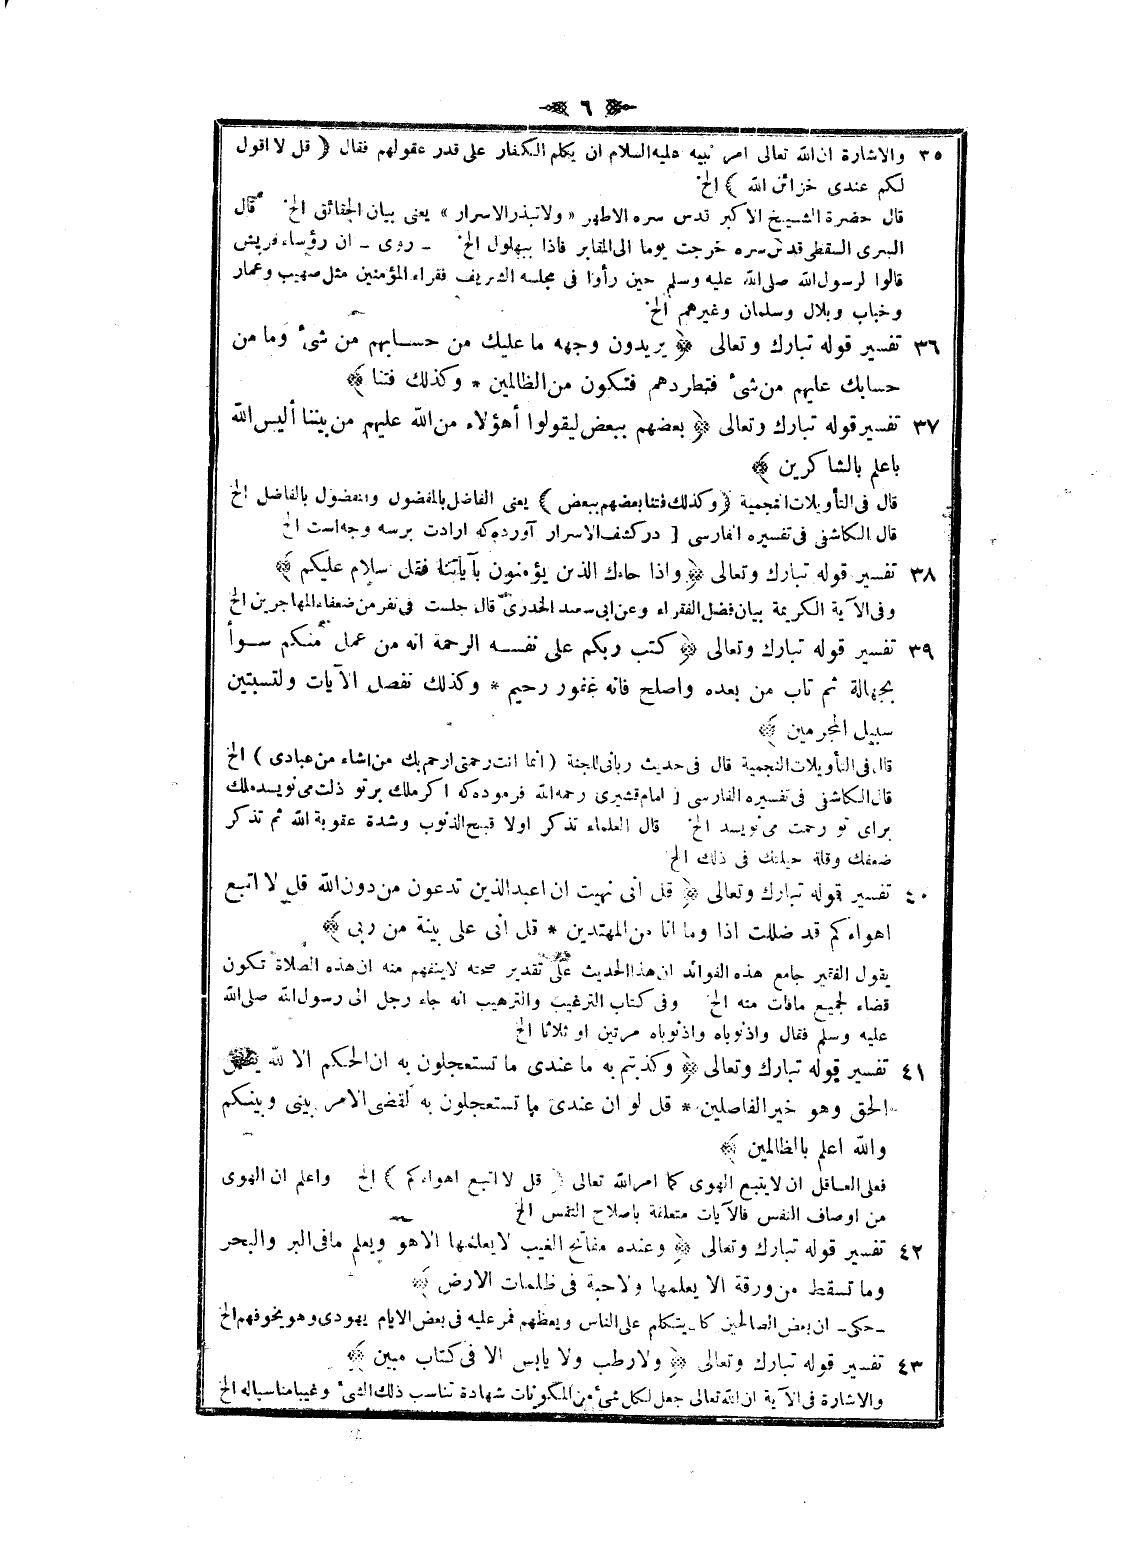 ٦
٣٥ والاشارة ان الله تعالى امر نبيه عليه السلام ان يكلم الكفار على قدر عقولهم فقال ( قل لا اقول
لكم عندى خزائن الله ) الخ
قال حضرة الشيخ الاكبر قدس سره الاطهر « ولا تبذر الاسرار » يعنى بيان الحقائق الخ قال
السرى السقطى قدس سره خرجت يوما الى المقابر فاذا ببهلول الخ ـ روى ـ ان رؤساء قريش
قالوا لرسول الله صلى الله عليه وسلم حين رأوا فى مجلسه الشريف فقراء المؤمنين مثل صهيب وعمار
وخباب وبلال وسلمان وغيرهم الخ
٣٦ تفسير قوله تبارك وتعالى ﴿ يريدون وجهه ما عليك من حسابهم من شئ وما من
حسابك عليهم من شئ فتطردهم فتكون من الظالمين * وكذلك فتنا ﴾
٣٧ تفسير قوله تبارك وتعالى ﴿ بعضهم ببعض ليقولوا أهؤلاء من الله عليهم من بيننا أليس الله
باعلم بالشاكرين ﴾
قال فى التأويلات النجمية ( وكذلك فتنا بعضهم ببعض ) يعنى الفاضل بالمفضول والمفضول بالفاضل الخ
قال الكاشفى فى تفسيره الفارسى [ در كشف الاسرار آورده كه ارادت برسه وجه است الخ
٣٨ تفسير قوله تبارك وتعالى ﴿ واذا جاءك الذين يؤمنون بآياتنا فقل سلام عليكم ﴾
وفى الآية الكريمة بيان فضل الفقراء وعن ابى سعيد الخدرى قال جلست فى نفر من ضعفاء المهاجرين الخ
٣٩ تفسير قوله تبارك وتعالى ﴿ كتب ربكم على نفسه الرحمة انه من عمل منكم سوأ
بجهالة ثم تاب من بعده واصلح فانه غفور رحيم * وكذلك نفصل الآيات ولتستبين
سبيل المجرمين ﴾
قال فى التأويلات النجمية قال فى حديث ربانى للجنة ( انما انت رحمتى ارحم بك من اشاء من عبادى ) الخ
قال الكاشفى فى تفسيره الفارسى [ امام قشيرى رحمه الله فرموده كه اكر ملك برتو ذلت مى نويسد ملك
براى تو رحمت مى نويسد الخ قال العلماء تذكر اولا قبيح الذنوب وشدة عقوبة الله ثم تذكر
ضعفك وقلة حيلتك فى ذلك الخ
٤٠ تفسير قوله تبارك وتعالى ﴿ قل انى نهيت ان اعبد الذين تدعون من دون الله قل لا اتبع
اهواءكم قد ضللت اذا وما انا من المهتدين * قل انى على بينة من ربى ﴾
يقول الفقير جامع هذه الفوائد ان هذا الحديث على تقدير صحته لا ينفهم منه ان هذه الصلاة تكون
قضاء لجميع مافات منه الخ وفى كتاب الترغيب والترهيب انه جاء رجل الى رسول الله صلى الله
عليه وسلم فقال واذنوباه واذنوباه مرتين او ثلاثا الخ
٤١ تفسير قوله تبارك وتعالى ﴿ وكذبتم به ما عندى ما تستعجلون به ان الحكم الا لله يقص
الحق وهو خير الفاصلين * قل لو ان عندى ما تستعجلون به لقضى الامر بينى وبينكم
والله اعلم بالظالمين ﴾
فعلى العاقل ان لا يتبع الهوى كما امر الله تعالى ( قل لا اتبع اهواءكم ) الخ واعلم ان الهوى
من اوصاف النفس فالآيات متعلقة باصلاح النفس الخ
٤٢ تفسير قوله تبارك وتعالى ﴿ وعنده مفاتح الغيب لا يعلمها الا هو ويعلم مافى البر والبحر
وما تسقط من ورقة الا يعلمها ولا حبة فى ظلمات الارض ﴾
ـ حكى ـ ان بعض الصالحين كان يتكلم على الناس ويعظهم فمر عليه فى بعض الايام يهودى وهو يخوفهم الخ
٤٣ تفسير قوله تبارك وتعالى ﴿ ولا رطب ولا يابس الا فى كتاب مبين ﴾
والاشارة فى الآية ان الله تعالى جعل لكل شئ من المكونات شهادة تناسب ذلك الشئ وغيبا مناسبا له الخ